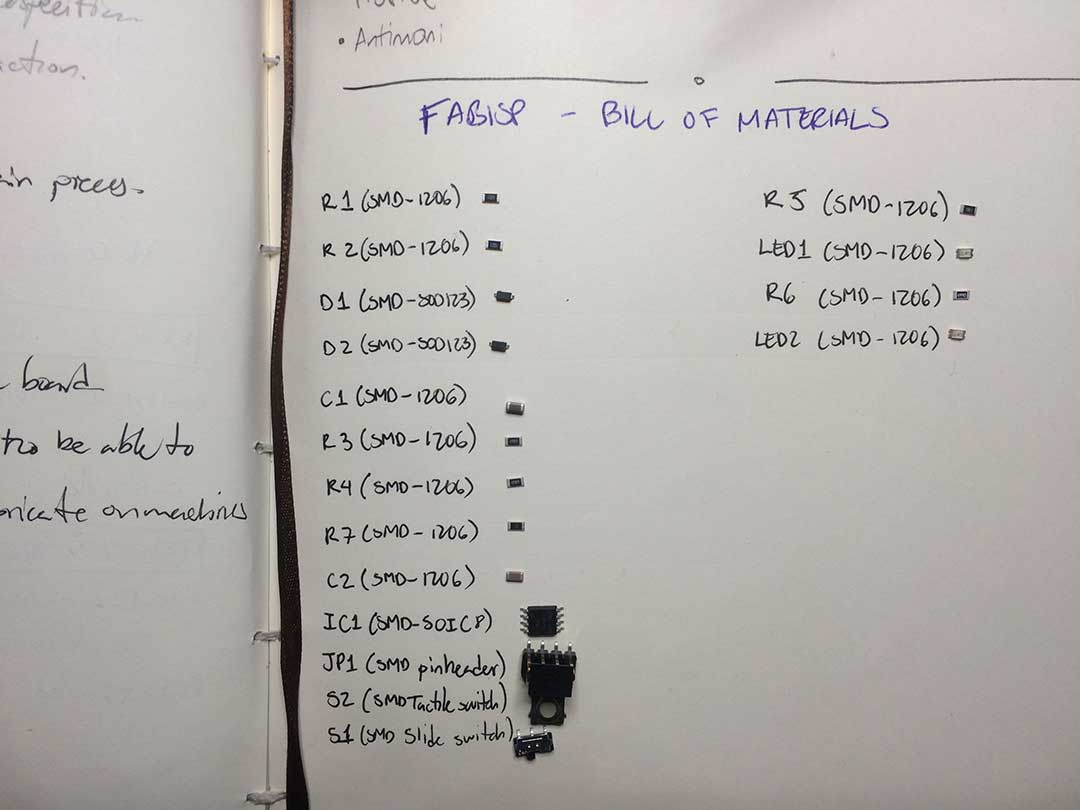 action.
in process.
board
to be able to
• Antimoni
FABISP - BILL OF MATERIALS
R1 (SMD-1206)
R2 (SMD-1206)
D1 (SMD-SOD123)
D2 (SMD-SOD123)
C1 (SMD-1206)
R3 (SMD-1206)
R4 (SMD-1206)
R7 (SMD-1206)
C2 (SMD-1206)
IC1 (SMD-SOIC8)
JP1 (SMD pinheader)
S2 (SMD Tactile switch)
S1 (SMD Slide switch)
R5 (SMD-1206)
LED1 (SMD-1206)
R6 (SMD-1206)
LED2 (SMD-1206)